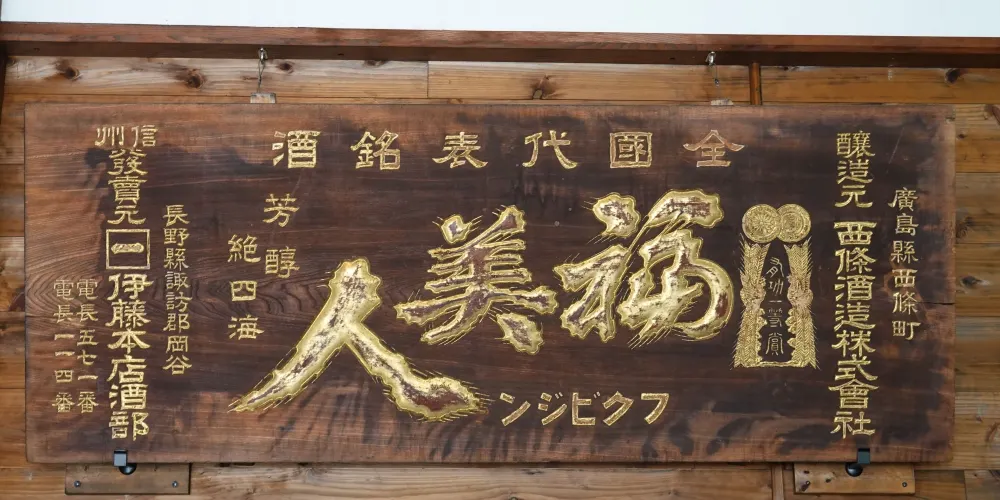 全國代表銘酒
廣島縣西條町
釀造元 西條酒造株式會社
有功一等賞
福美人
フクビジン
芳醇
絶四海
長野縣諏訪郡岡谷
信州
發賣元 一 伊藤本店酒部
電長五七一番
電長一一四番